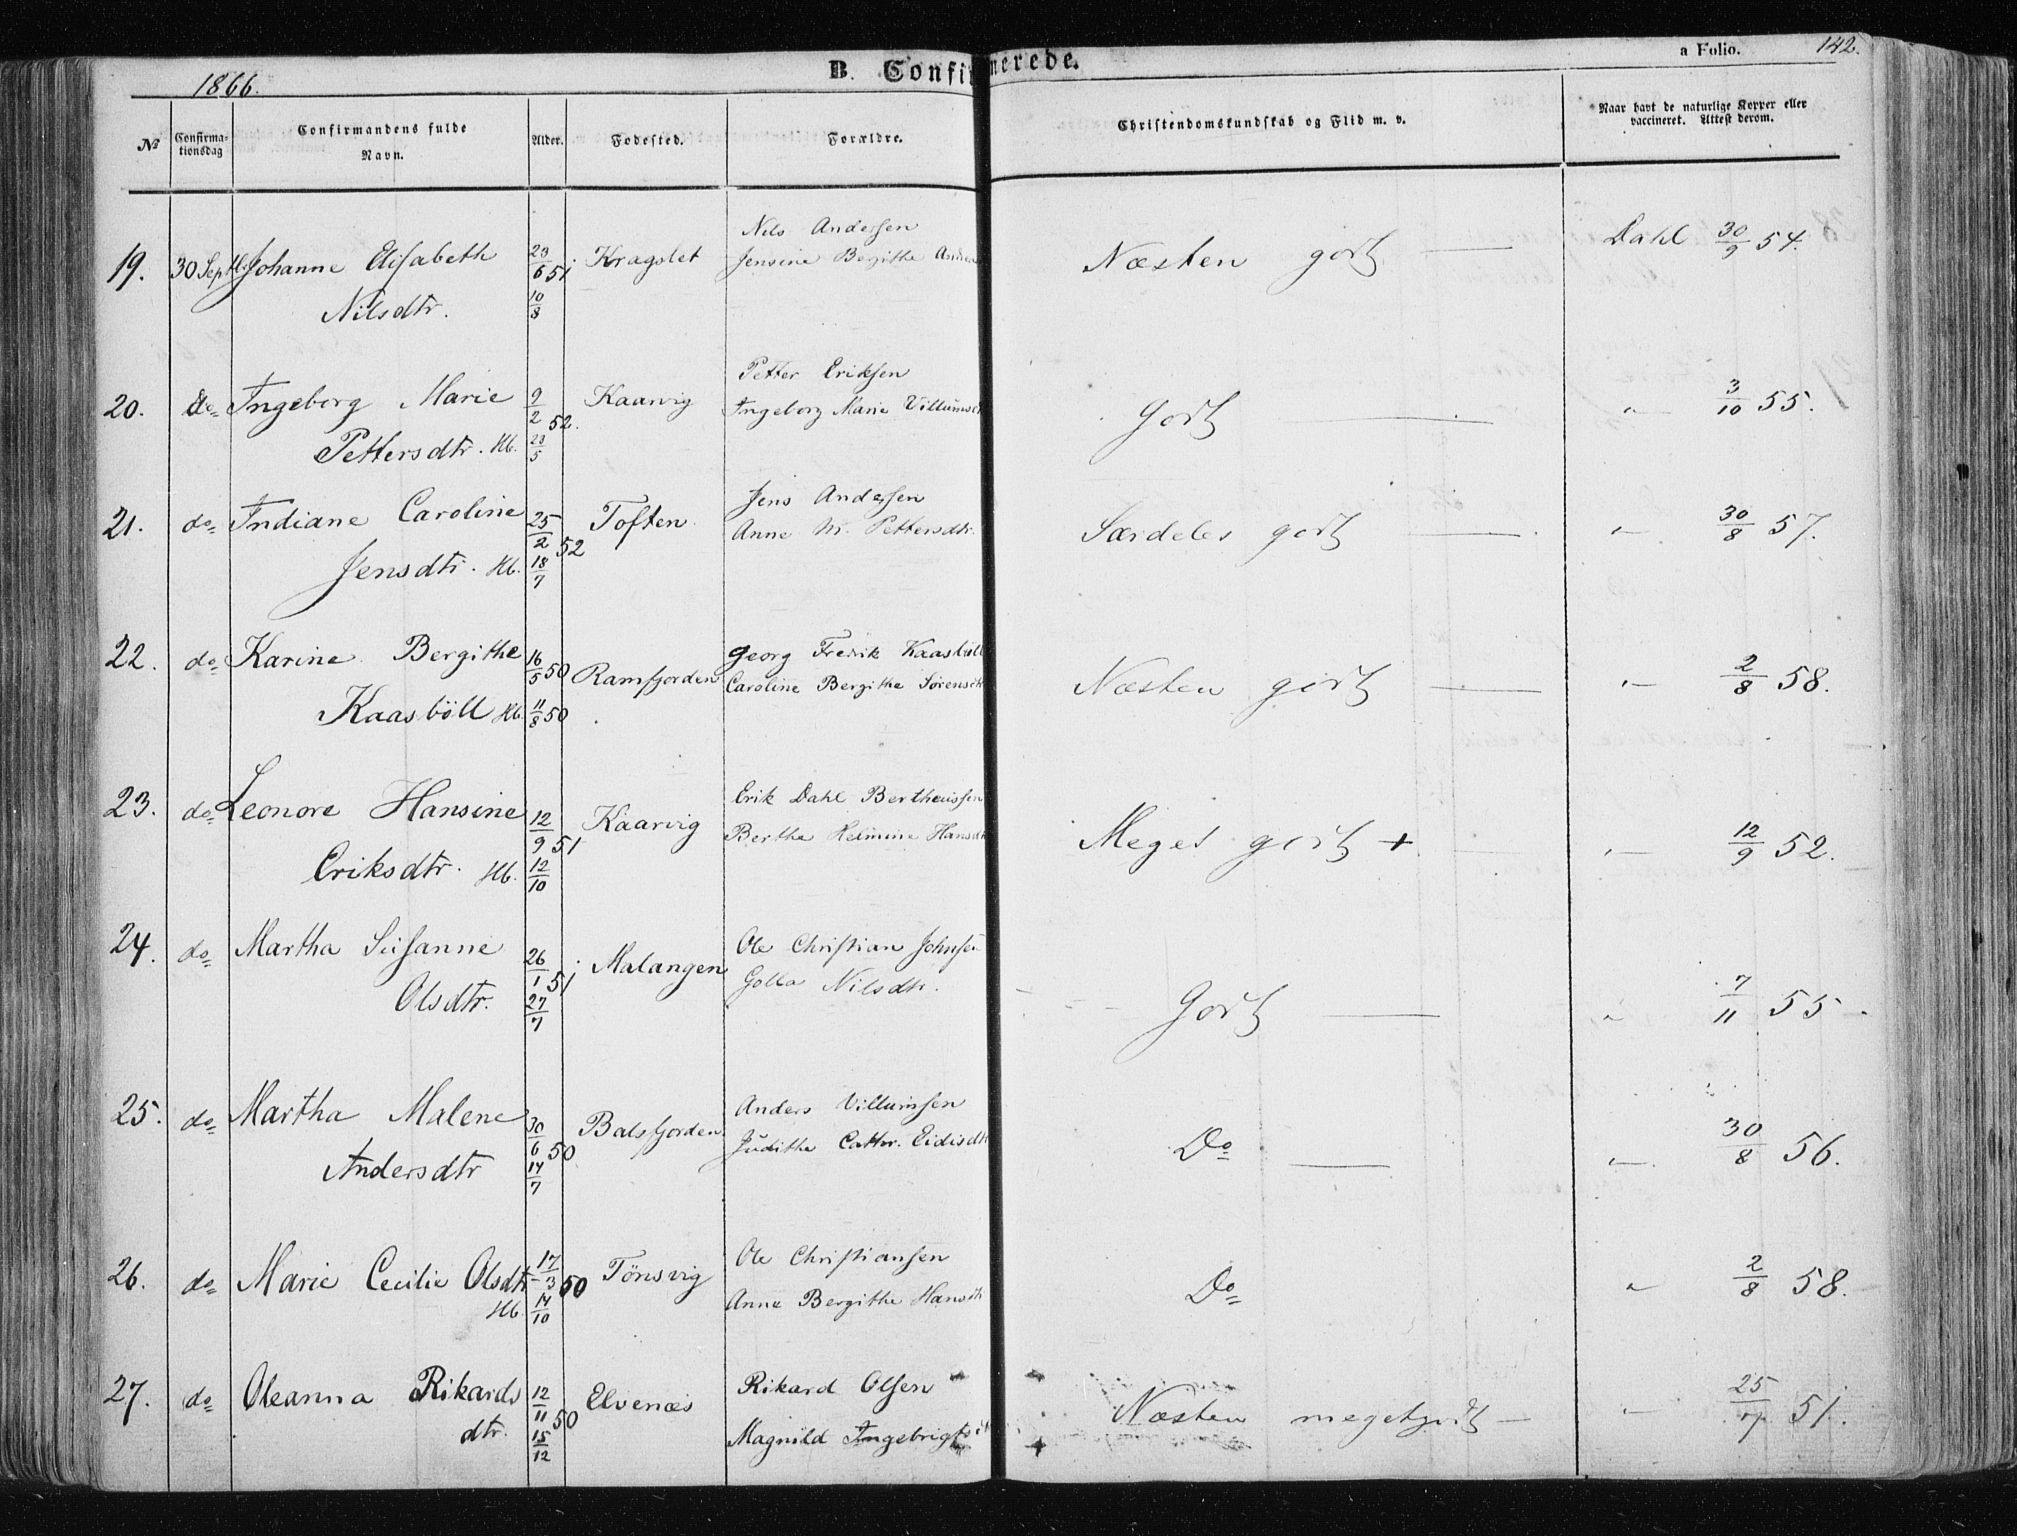 1866.
B. Confirmerede.
a Folio.
142.
No
Confirma-
tionsdag
Confirmandens fulde
Navn.
Alder.
Fodested.
Forældre.
Christendomskundskab og Flid m. v.
Naar havt de naturlige Kopper eller
vaccineret. Attest derom.
19. 30 Septb Johanne Elisabeth 23/6 51 Kragslet Nils Andersen Næsten godt Dahl 30/9 54.
Nilsdtr. 10/8 Jensine Bergithe
20. do Ingeborg Marie 9/2 52. Kaarvig Petter Eriksen Godt " 3/10 55.
Pettersdtr. Hb. 23/5 Ingeborg Marie
21. do Indiane Caroline 25/2 52 Toften Jens Andersen Særdeles godt " 30/8 57.
Jensdtr. Hb. 18/7 Anne M. Pettersdtr.
22. do Karine Bergithe 16/5 50 Ramfjorden Georg Fredrik Kaasböll Næsten godt " 2/8 58.
Kaasböll Hb. 11/8 50 Caroline Bergithe
23. do Leonore Hansine 12/9 51 Kaarvig Erik Dahl Bertheussen Meget godt + " 12/9 52.
Eriksdtr. Hb. 12/10 Berthe Helmine Hansdtr
24. do Martha Susanne 26/1 51 Malangen Ole Christian Johnsen Godt " 7/11 55.
Olsdtr. 27/7 Golla Nilsdtr.
25. do Martha Malene 30/6 50 Balsfjorden Anders Villumsen Do " 30/8 56.
Andersdtr 14/7 Judithe Cathr. Eidisdtr
26. do Marie Cecilie Olsdtr 17/3 50 Tönsvig Ole Christiansen Do " 2/8 58.
Hb. 14/10 Anne Bergithe Hansdtr
27. do Oleanna Rikards 12/11 50 Elvenæs Rikard Olsen Næsten megetgodt " 25/7 51.
dtr. 15/12 Magnild